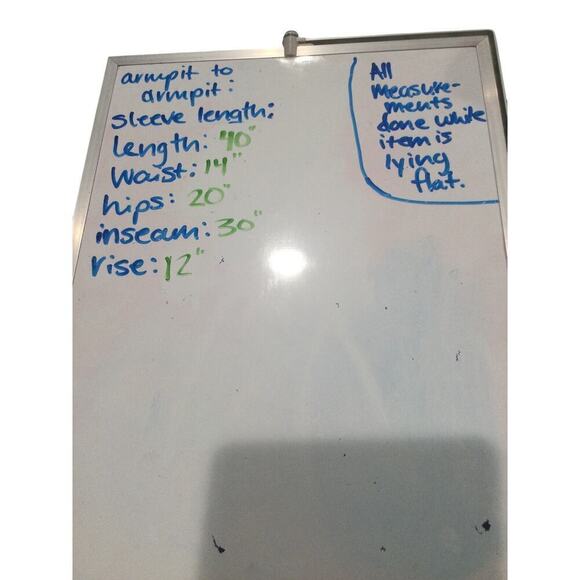 armpit to
armpit:
sleeve length:
Length: 40"
Waist: 14"
hips: 20"
inseam: 30"
rise: 12"
All
Measure-
ments
done while
item is
lying
flat.